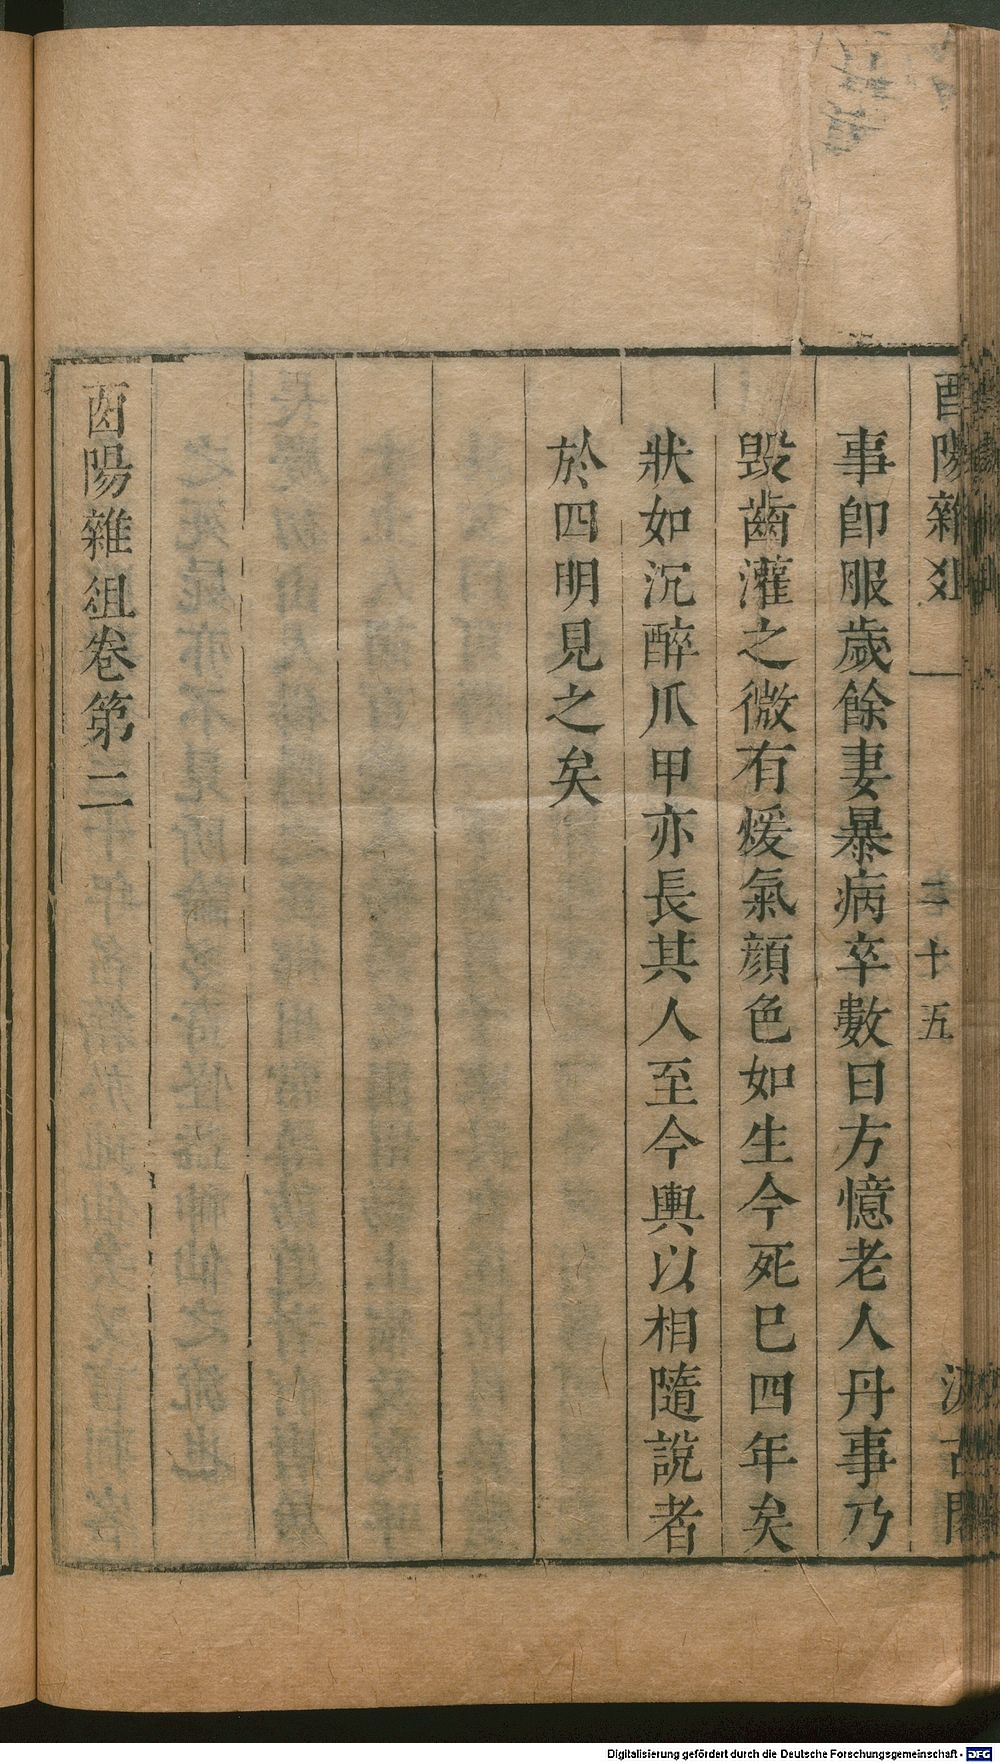 酉陽雜俎
二十五
汲古閣
事卽服歲餘妻暴病卒數日方憶老人丹事乃
毀齒灌之微有煖氣顔色如生今死巳四年矣
狀如沉醉爪甲亦長其人至今輿以相隨說者
於四明見之矣
酉陽雜俎卷第二
Digitalisierung gefördert durch die Deutsche Forschungsgemeinschaft - DFG